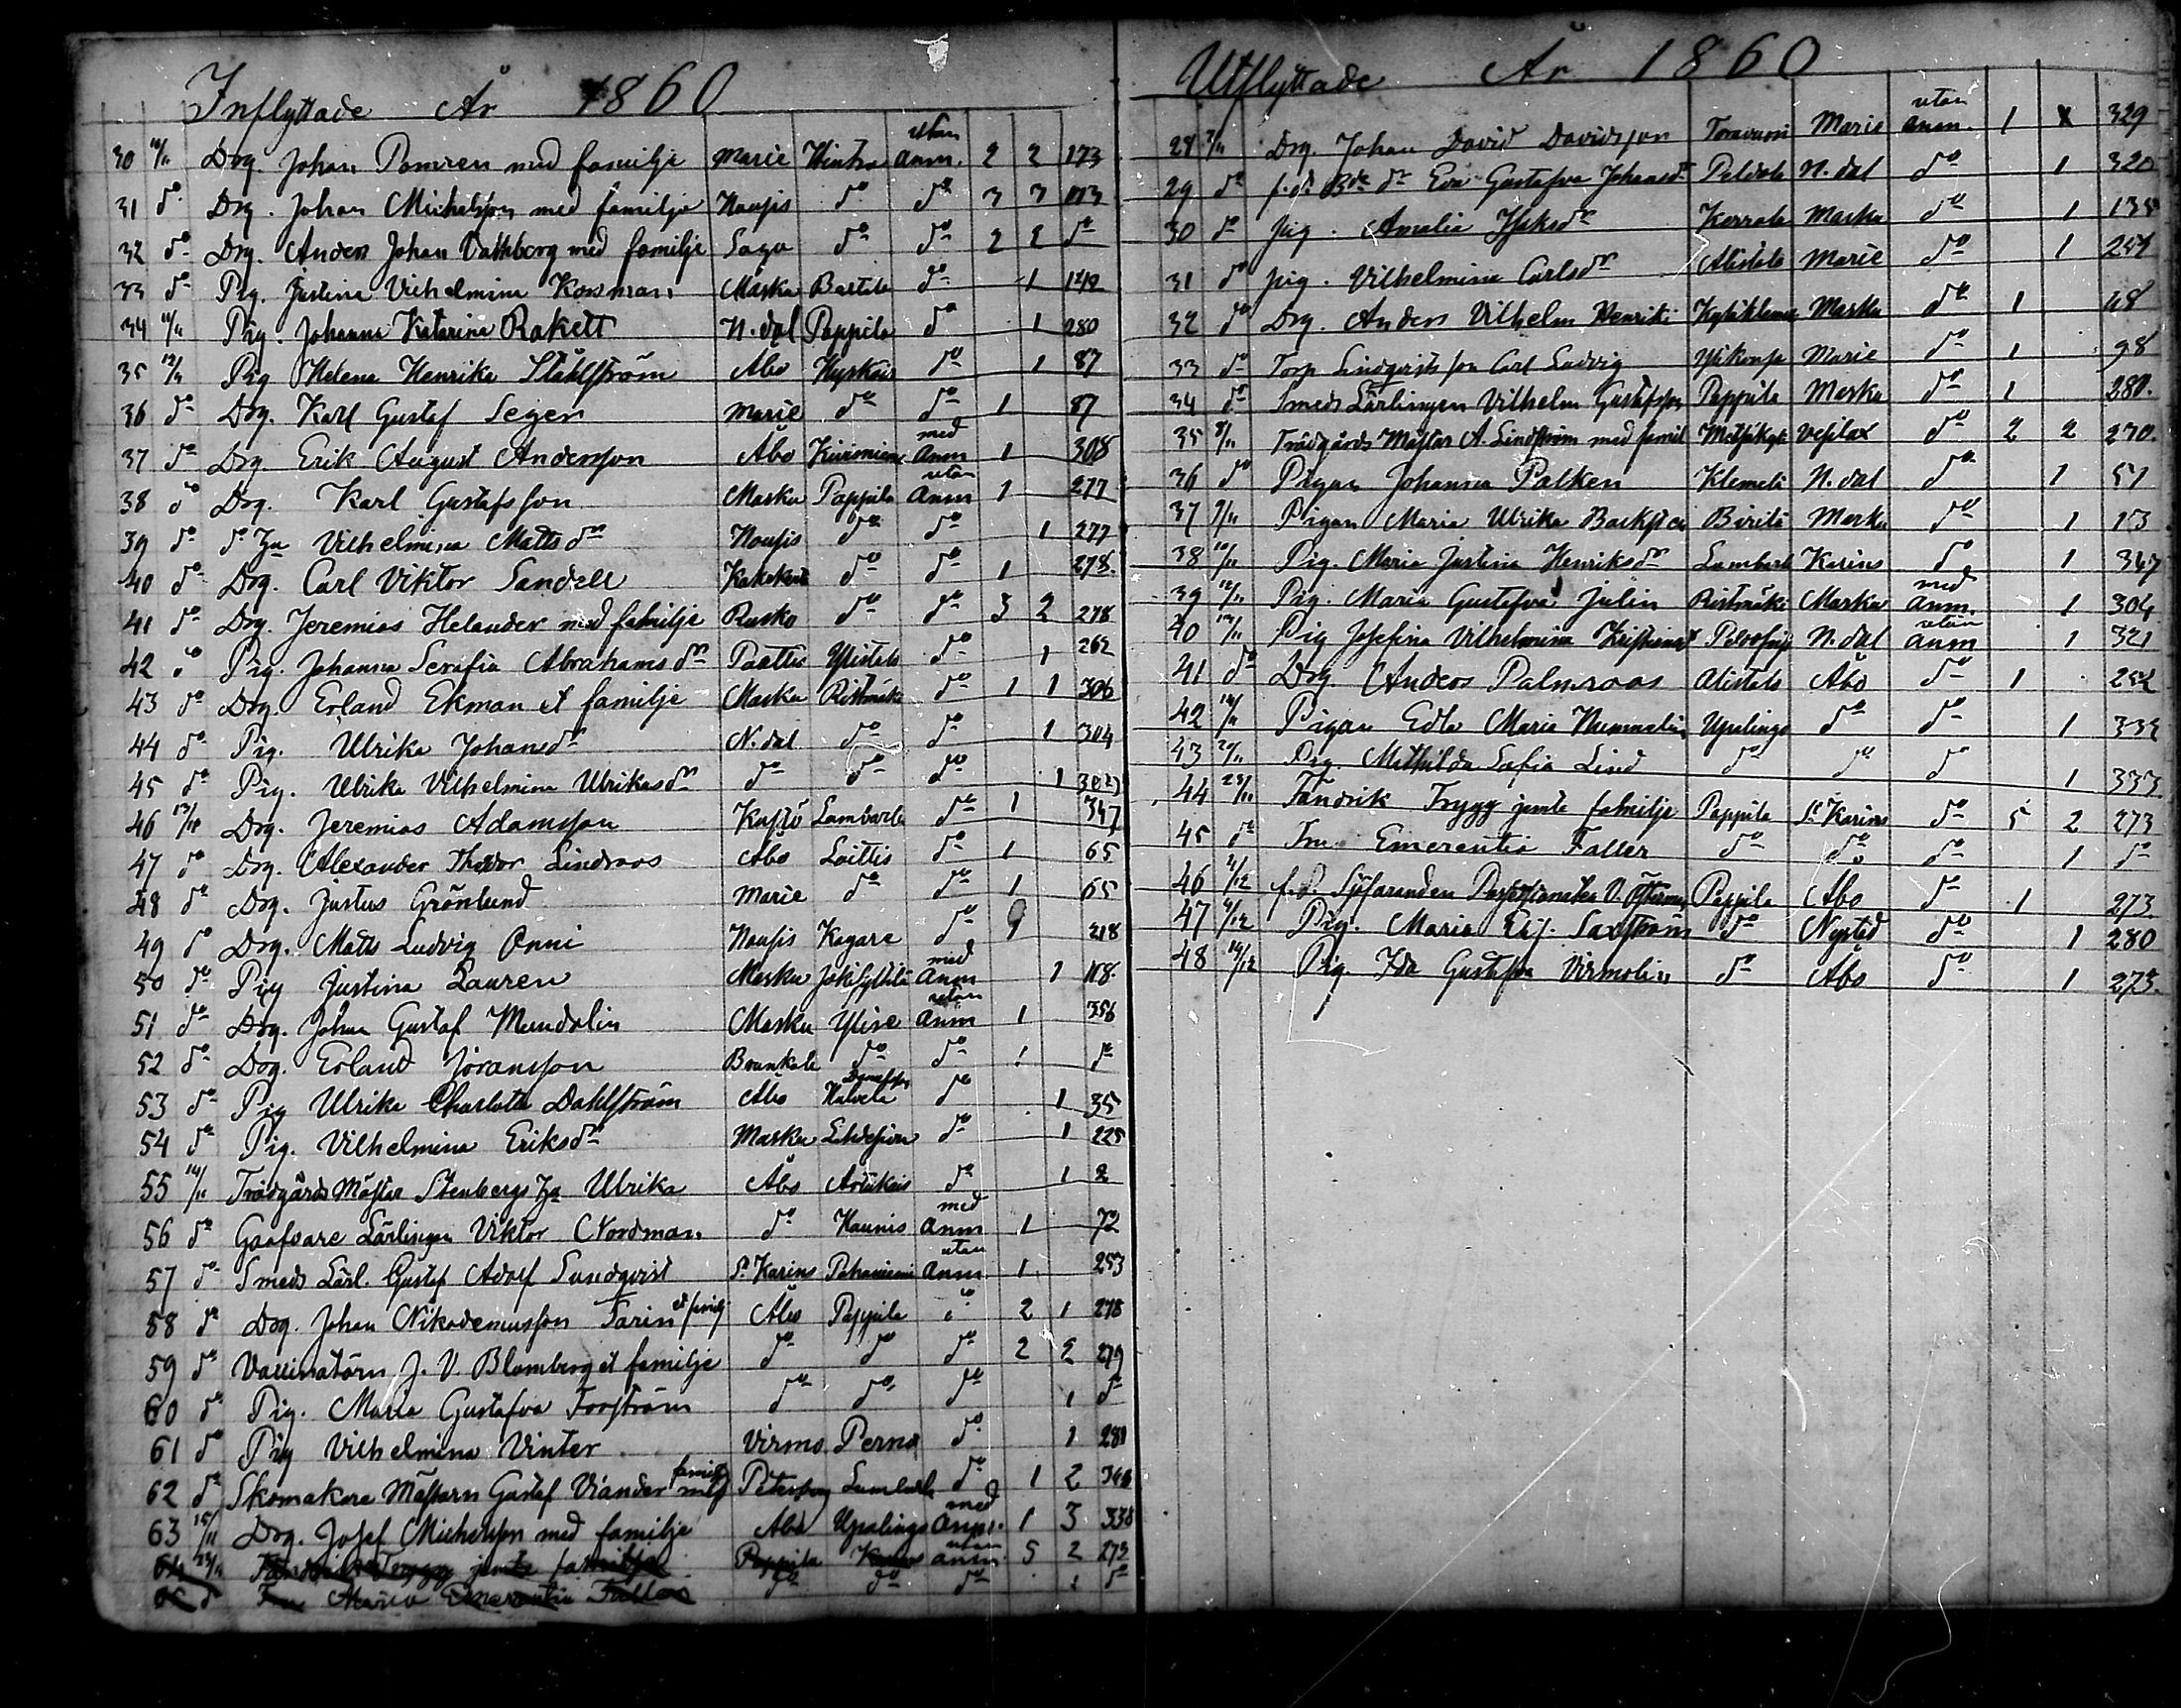 Inflyttade År 1860
30 10/11 Drg. Johan Pomren med familje Marie Hintsa utan anm. 2 2 173
31 do Drg. Johan Michelsson med familje Nousis do do 3 3 173
32 do Drg. Anders Johan Vathberg med familje Sagu do do 2 2 do
33 do Pig. Justina Vilhelmina Kossman Masku do 1
34 11/11 Pig. Johanna Katarina Rakett N.dal Pappila do 1 280
35 12/11 Pig Helena Henrika Ståhlström Åbo do 1 87
36 do Drg. Karl Gustaf Seger Marie do do 1 87
37 do Drg. Erik August Andersson Åbo med Anm 1 308
38 do Drg. Karl Gustafsson Masku Pappila utan Anm 1 277
39 do do Hu Vilhelmina Mattsdr Nousis do do 1 277
40 do Drg. Carl Viktor Sandell do do 1 278.
41 do Drg. Jeremias Helander med familje Rusko do do 3 2 278
42 do Pig. Johanna Serafia Abrahamsdr Paattis Ylistalo do 1 262
43 do Drg. Erland Ekman et familje Masku Ristimäki do 1 1 306
44 do Pig. Ulrika Johansdr N.dal do do 1 304
45 do Pig. Ulrika Vilhelmina Ulrikasdr do do do 1
46 13/11 Drg. Jeremias Adamsson Lambarla do 1 347
47 do Drg. Alexander Thedor Lindroos Åbo Loittis do 1 65
48 do Drg. Justus Grönlund Marie do do 1 65
49 do Drg. Matts Ludvig Onni Nousis Kagare do 218
50 do Pig Justina Lauren Masku med Anm 1 118.
51 do Drg. Johan Gustaf Mandelin Masku utan Anm 1 356
52 do Drg. Erland Göransson Brunkala do do 1 do
53 do Pig Ulrika Charlotta Dahlström Åbo do 1 35
54 do Pig. Vilhelmina Eriksdr Masku do 1 225
55 14/11 Trädgårds Mästar Stenbergs Hu Ulrika Åbo do 1 2
56 do Garfvare Lärlingen Viktor Nordman do Kaunis med Anm 1 72
57 do Smeds Lärl. Gustaf Adolf Sundqvist St Karins Pahaniemi utan Anm. 1 253
58 do Drg. Johan Nikodemusson Farin et familj Åbo Pappila do 2 1 278
59 do J. V. Blomberg et familje do do do 2 2 279
60 do Pig. Maria Gustafva Forström do do do 1 do
61 do Pig Vilhelmina Vinter Virmo Perno do 1 281
62 do Skomakare Mästarn Gustaf Viander med familje Petersburg Lambarla do 1 2 346
63 15/11 Drg. Josef Michelsson med familje Åbo Upalingo med Anm. 1 3 338
64 23/11 Fändrik Trygg jemte familje Pappila Karins utan anm 5 2 273
65 do Fru Maria Emerentia Faller do do do 1 do
Utflyttade År 1860
28 7/11 Drg. Johan David Davidsson Marie utan anm. 1 329
29 do f.d. Eva Gustafva Johansdr Peldola N.dal do 1 320
30 do Pig. Amalia Isaksdr Masku do 1 135
31 do Pig. Vilhelmina Carlsdr Alistalo Marie do 1
32 do Drg. Anders Vilhelm Henriks Masku do 1 48
33 do Torp Lindqvists son Carl Ludvig Marie do 1 98
34 do Smeds Lärlingen Vilhelm Gustafsson Pappila Masku do 1 280.
35 8/11 Trädgårds Mästar A. Lindström med famil Vesilax do 2 2 270.
36 do Pigan Johanna Palken Klemelä N.dal do 1 51
37 9/11 Pigan Maria Ulrika Backsten Birilä Masku do 1 13
38 10/11 Pig. Maria Justina Henriksdr Lambarla Karins do 1 347
39 12/11 Pig. Maria Gustafva Julin Ristimäki Masku med Anm. 1 304
40 14/11 Pig Josefina Vilhelmina N.dal utan Anm 1 321
41 do Drg. Anders Palmroos Alistalo Åbo do 1 252
42 do Pigan Edla Maria Nummelin Upalingo do do 1
43 20/11 Pig. Mathilda Sofia Lind do do do 1 333
44 23/11 Fändrik Trygg jemte familje Pappila St Karins do 5 2 273
45 do Fru Emerentia Faller do do do 1 do
46 4/12 f.d. Sjöfaranden V. Österman Pappila Åbo do 1 273.
47 9/12 Pig. Maria Eufr. Saxström do Nystad do 1 280
48 14/12 Pig. Ida Gustafva Virmolin do Åbo do 1 273.